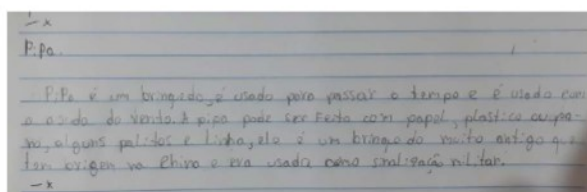 Pipa.
Pipa é um bringuedo, é usado para passar o tempo e é usada com
a ajuda do vento. A pipa pode ser feita com papel, plastico ou pa-
no, alguns palitos e linha, ela é um bringuedo muito antigo que
tem origen na China e era usada como sinalização militar.